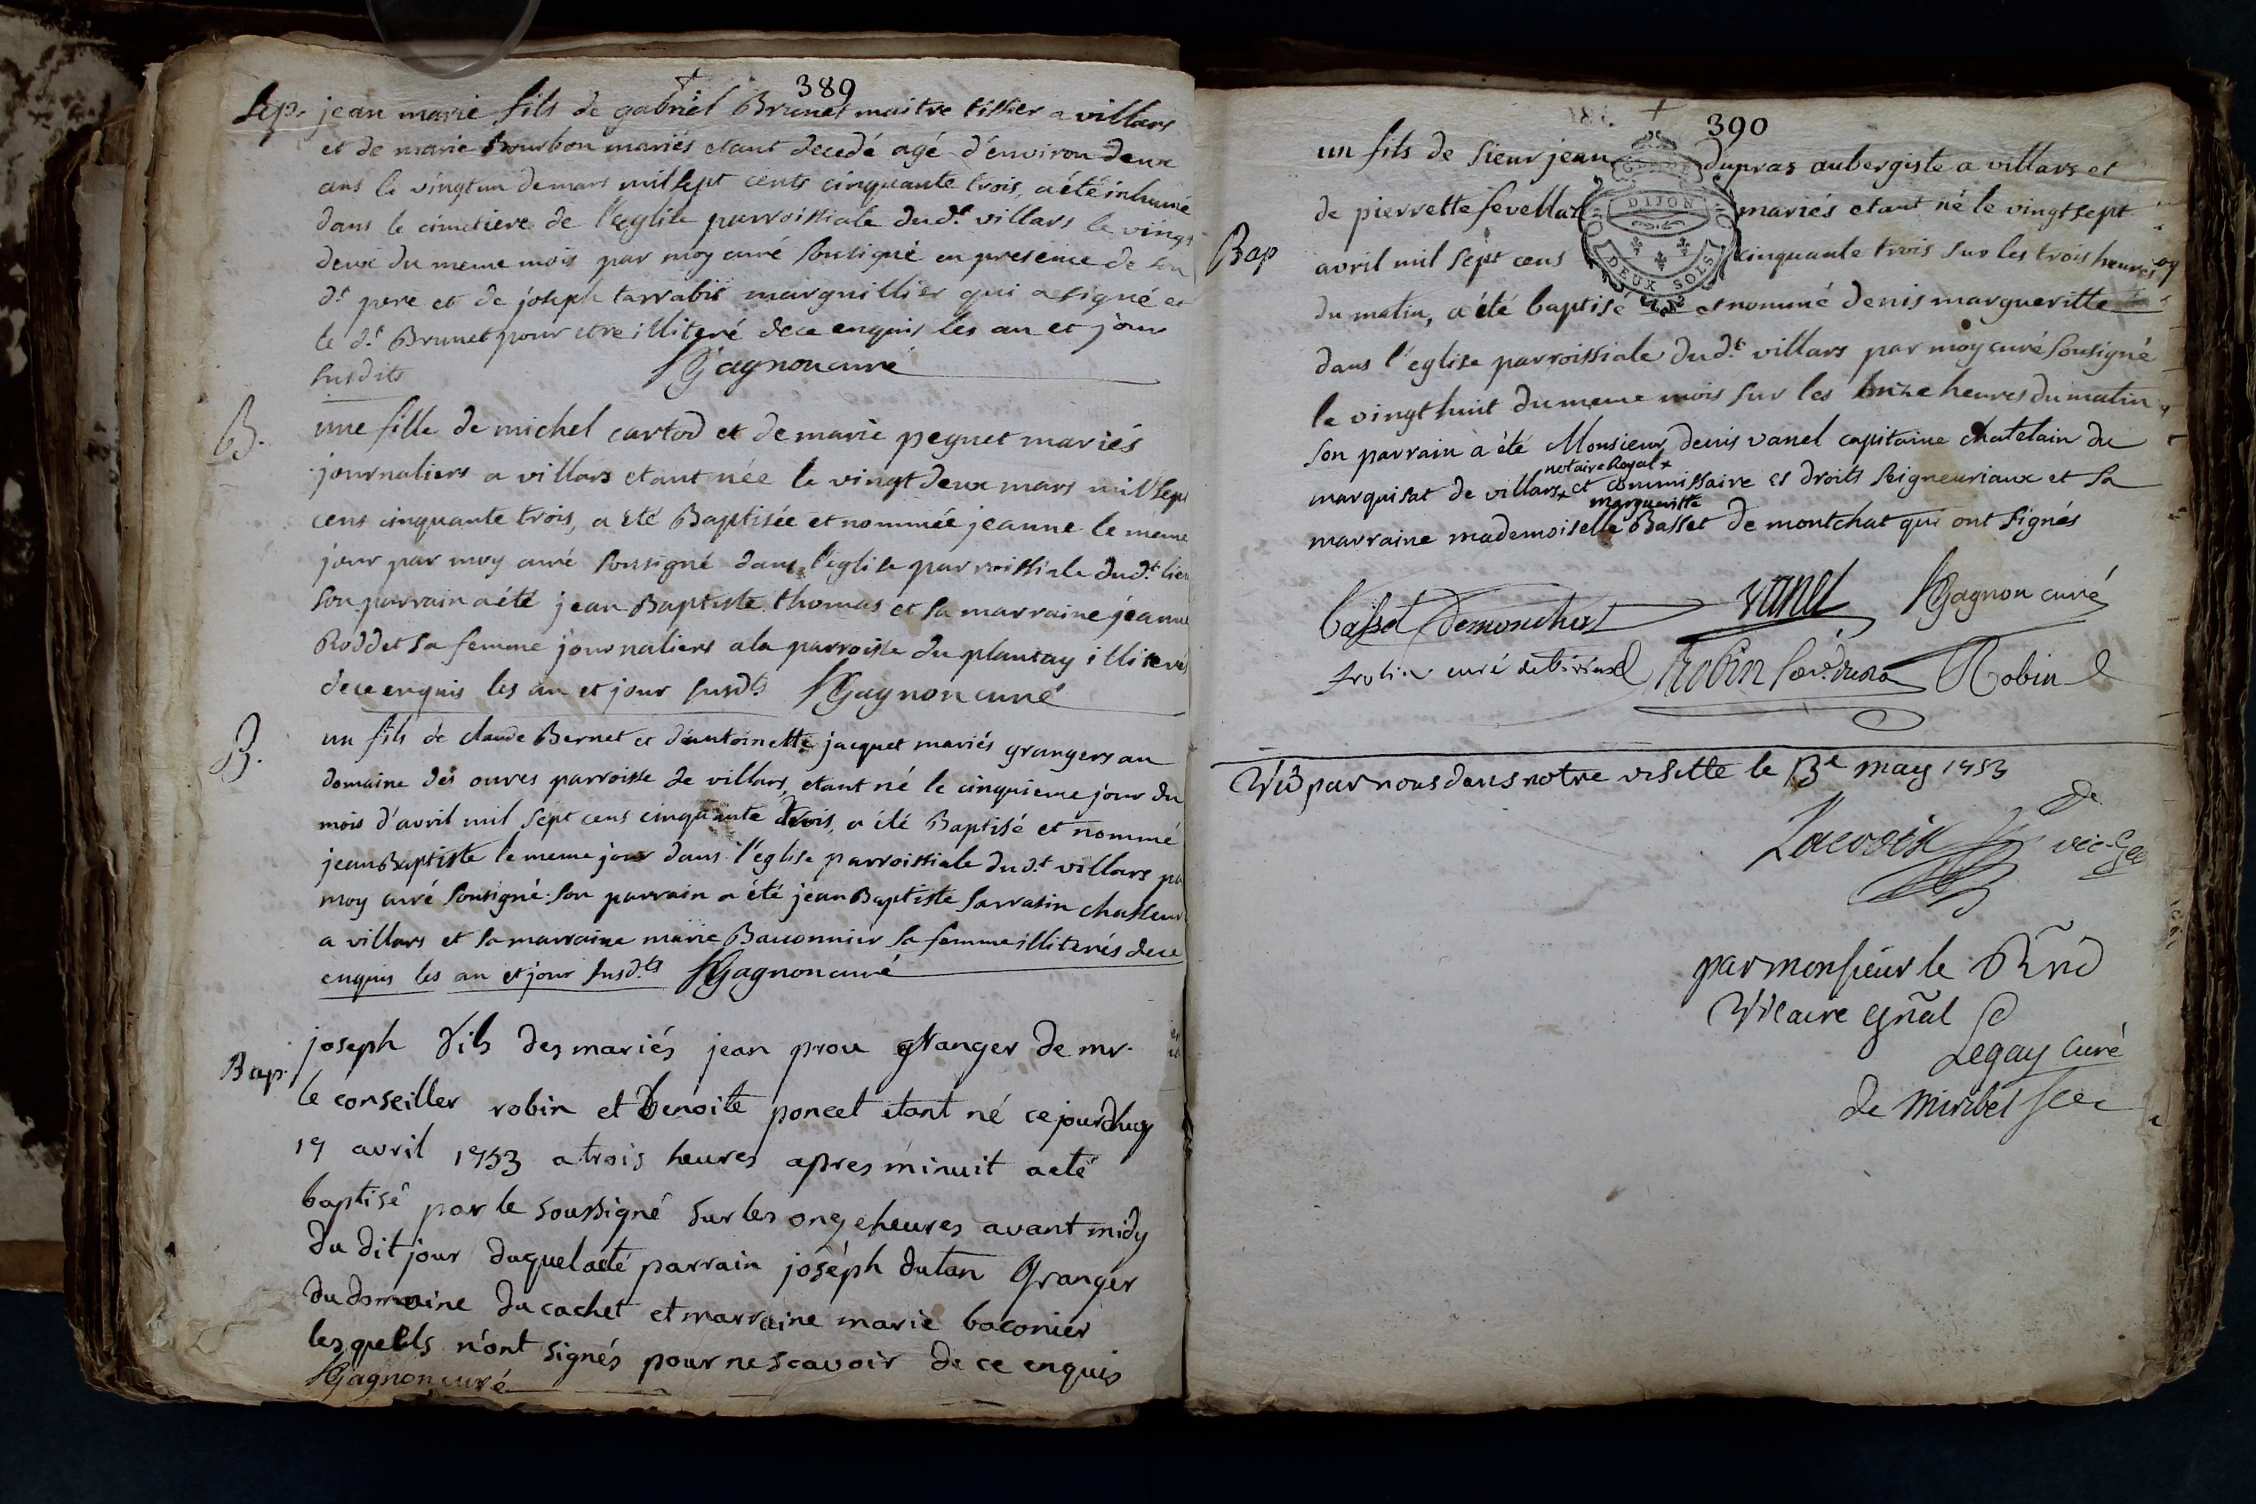 389
Sep. jean marie fils de gabriel Brunet maitre tissier a villars
et de marie Bourbon mariés etant decedé agé d'environ deux
ans le vingt un de mars mil sept cents cinquante trois, a été inhumé
dans le cimetiere de l'eglise parroissiale dud.t villars le vingt
deux du meme mois par moy curé sousigné en presence de son
d.t pere et de joseph tarrabit marguillier qui a signé et
le d.t Brunet pour etre illiteré de ce enquis les an et jour
susdits Gagnon curé
B. une fille de michel cartod et de marie pegnet mariés
journaliers a villars etant née le vingt deux mars mil sept
cens cinquante trois, a été Baptisée et nommée jeanne le meme
jour par moy curé sousigné dans l'eglise parroissiale dud.t lieu
son parrain a été jean Baptiste thomas et sa marraine jeanne
Roddet sa femme journaliers a la parroisse du plantay illiterés
de ce enquis les an et jour susd.ts Gagnon curé
B. un fils de claude Bernet et d'antoinette jacquet mariés grangers au
domaine des oures parroisse de villars, etant né le cinquieme jour du
mois d'avril mil sept cens cinquante trois, a été Baptisé et nommé
jean Baptiste le meme jour dans l'eglise parroissiale dud.t villars pa
moy curé sousigné. son parrain a été jean Baptiste sarrasin chasseur
a villars et sa marraine marie Bauonnier sa femme illiterés de ce
enquis les an et jour susd.ts Gagnon curé
Bap. joseph fils des mariés jean prou granger de mr.
le conseiller robin et benoite poncet etant né ce jourdhuy
17 avril 1753 a trois heures apres minuit a eté
baptisé par le soussigné sur les onze heures avant midy
du dit jour duquel a eté parrain joseph dutan granger
du domaine du cachet et marraine marie baconier
lesquells n'ont signés pour ne scavoir de ce enquis
Gagnon curé
390
un fils de sieur jean dupras aubergiste a villars et
de pierrette fevellat mariés etant né le vingt sept
Bap avril mil sept cens cinquante trois sur les trois heures
du matin, a été baptisé et nommé denis margueritte
dans l'eglise parroissiale dud.t villars par moy curé sousigné
le vingt huit du meme mois sur les onze heures du matin
son parrain a été Monsieur denis vanel capitaine chatelain du
notaire Royal +
marquisat de villars + et commissaire es droits seigneuriaux et sa
margueritte
marraine mademoiselle Basset de montchat qui ont signés
GENER
DIJON
DEUX SOLS
basset demonchat vanel Gagnon curé
curé Robin Robin
Vû par nous dans notre visitte le 13e may 1753
Lacroix vic. ge
par monsieur le Rñd
Vicaire gñal
Legay curé
de miribel